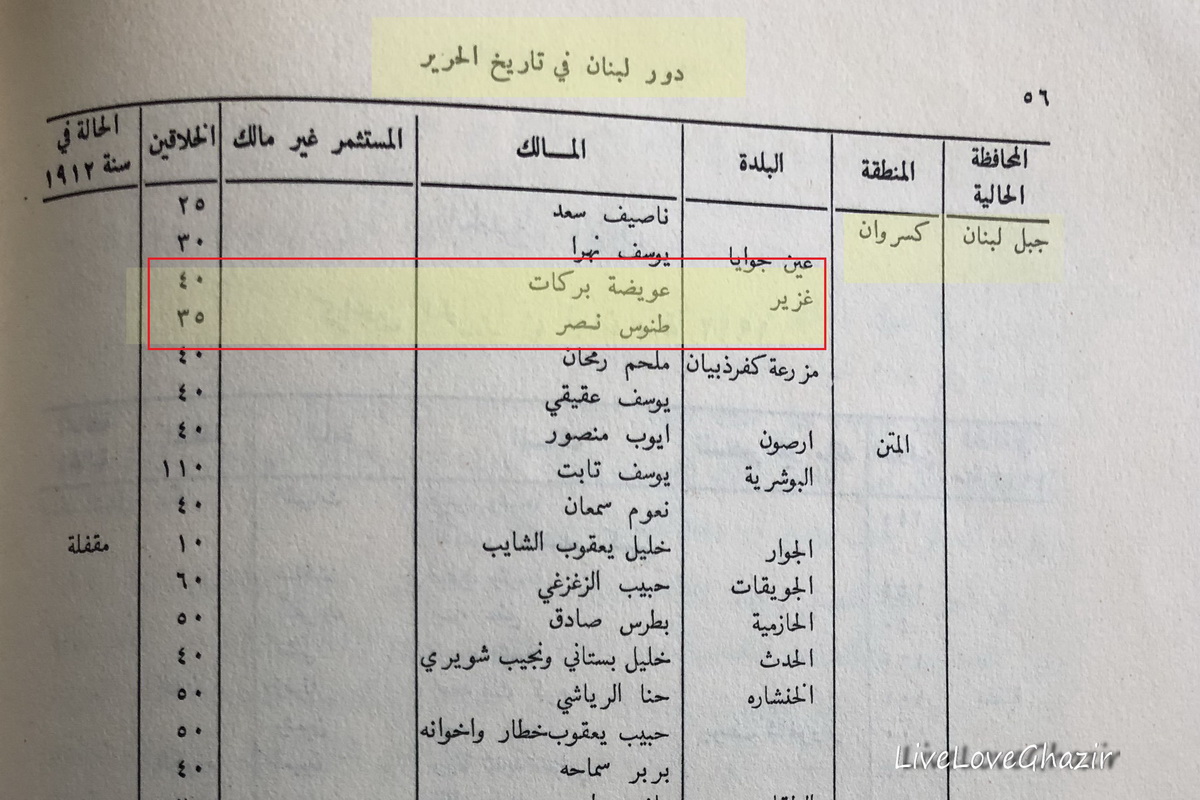 دور لبنان في تاريخ الحرير
٥٦
المحافظة الحالية المنطقة البلدة المــالك المستثمر غير مالك الخلاقين الحالة في سنة ١٩١٢
ناصيف سعد ٢٥
جبل لبنان كسروان عين جوايا يوسف نهرا ٣٠
غزير عويضة بركات ٤٠
طنوس نصر ٣٥
مزرعة كفرذبيان ملحم رمحان ٤٠
يوسف عقيقي ٤٠
المتن ارصون ايوب منصور ٤٠
البوشرية يوسف تابت ١١٠
نعوم سمعان ٤٠
الجوار خليل يعقوب الشايب ١٠ مقفلة
الجويقات حبيب الزغزغي ٦٠
الحازمية بطرس صادق ٥٠
الحدث خليل بستاني ونجيب شويري ٤٠
الخنشاره حنا الرياشي ٥٠
حبيب يعقوب خطار واخوانه ٥٠
بربر سماحه ٤٠
LiveLoveGhazir